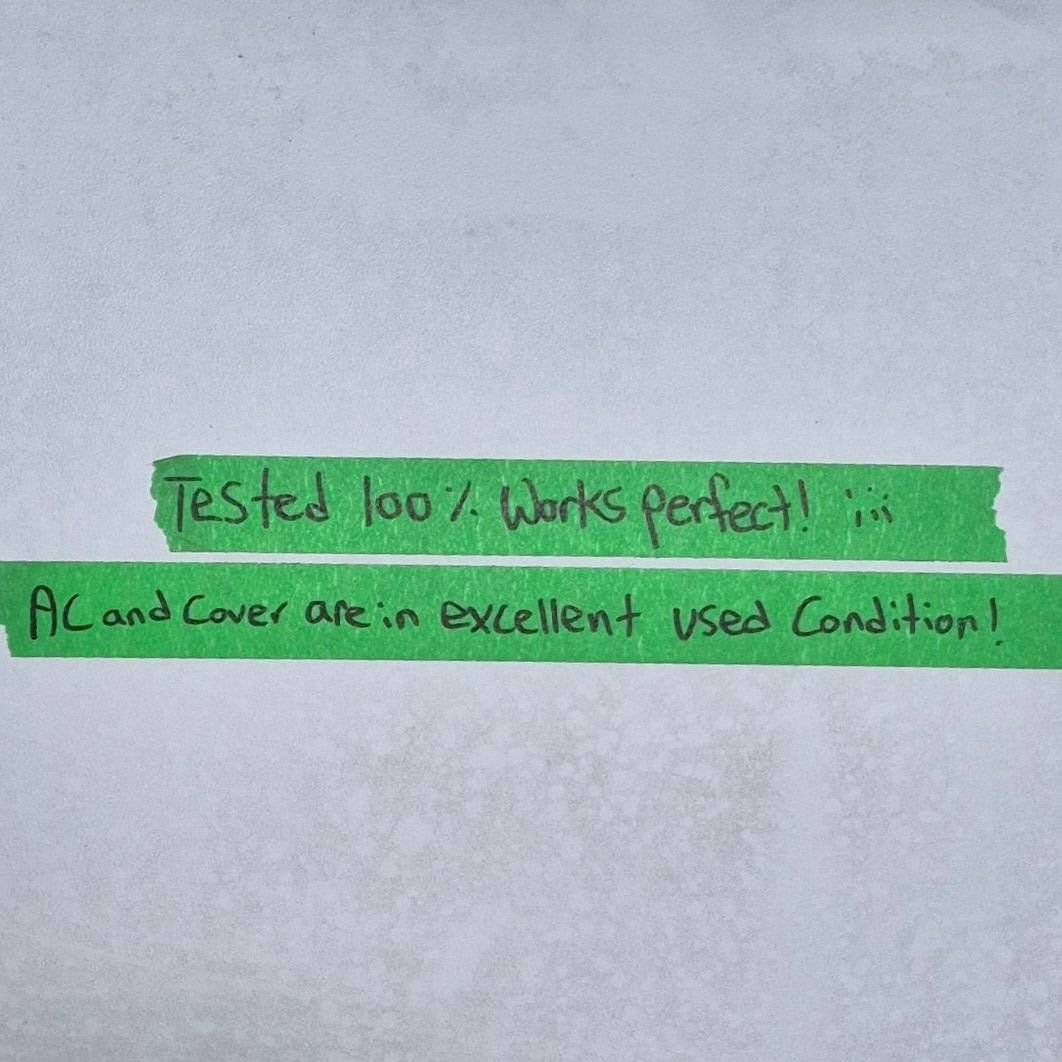 Tested 100% Works perfect!
AC and Cover are in excellent used Condition!